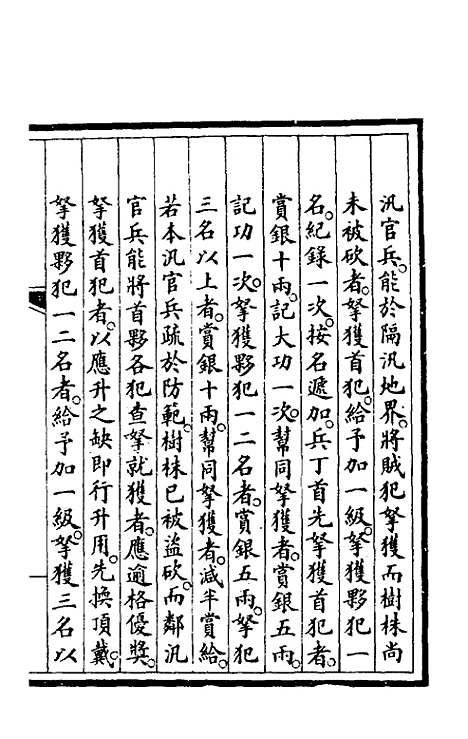 汛官兵。能於隔汛地界。將賊犯拏獲而樹株尚
未被砍者。拏獲首犯。給予加一級。拏獲夥犯一
名。紀錄一次。按名遞加。兵丁首先拏獲首犯者。
賞銀十兩。記大功一次。幫同拏獲者。賞銀五兩。
記功一次。拏獲夥犯一二名者。賞銀五兩。拏犯
三名以上者。賞銀十兩。幫同拏獲者。減半賞給。
若本汛官兵疏於防範。樹株已被盜砍。而鄰汛
官兵能將首夥各犯查拏就獲者。應逾格優獎。
拏獲首犯者。以應升之缺即行升用。先換頂戴。
拏獲夥犯一二名者。給予加一級。拏獲三名以